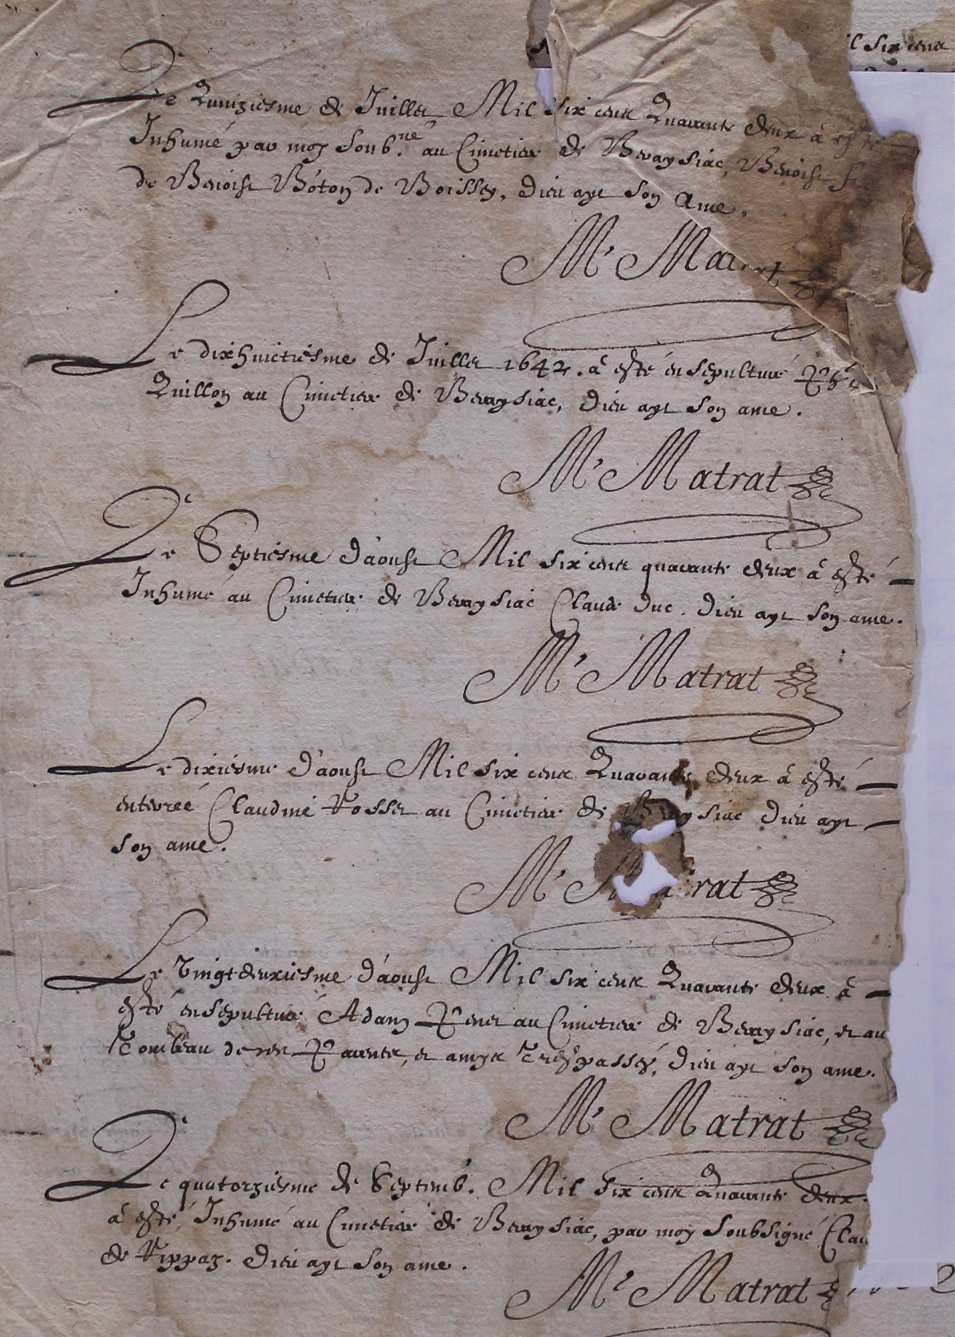 il six cens
Le Quinziesme de Juillet Mil six cens Quarante deux à esté
Inhumé par moy soub.né au Cimetiere de Veraysiac, Benoist
de Benoist Bóton de Boissey, dieu aye son Ame.
Mr Matrat
Le dixhuictiesme de Juillet 1642. à esté ensepulturé
Quillon au Cimetiere de Veraysiac, dieu aye son ame.
Mr Matrat
Le Septiesme d'aoust Mil six cens quarante deux à esté
Inhumé au Cimetiere de Veraysiac Claude duc. dieu aye son ame.
Mr Matrat
Le dixiesme d'aoust Mil six cens Quarante deux à esté
enterreé Claudine Rosset au Cimetiere de Veraysiac dieu aye
son ame.
Mr Matrat
Le vingtdeuxiesme d'aoust Mil six cens Quarante deux à
esté ensepulturé Adam au Cimetiere de Veraysiac, et au
Tombeau de ses Parents, et amys Trespassés, dieu aye son ame.
Mr Matrat
Le quatorziesme de Septemb. Mil six cens Quarante deux
à esté Inhumé au Cimetiere de Veraysiac, par moy soubsigné Clau
de Rippaz. dieu aye son ame.
Mr Matrat